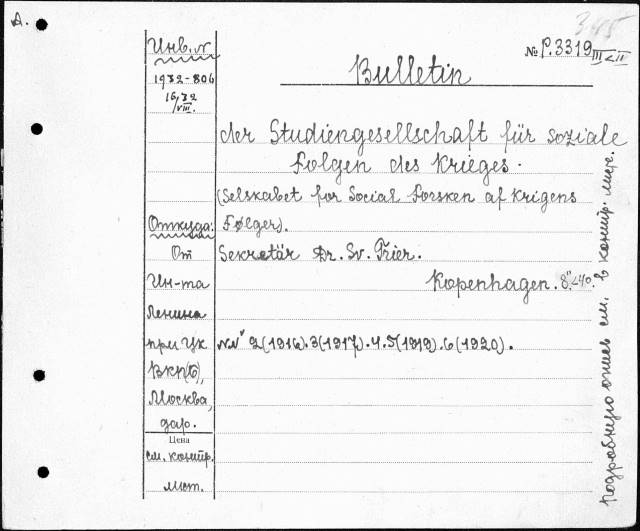 A.
Инв. №
№ P.3319 III<II
Bulletin
1932-806
16/VIII.32
der Studiengesellschaft für soziale
Folgen des Krieges.
(Selskabet for Social Forsken af Krigens
Откуда: Følger).
От Sekretär Dr. Sv. Trier.
Ин-та Kopenhagen. 8°.<40.
Ленина
при ЦК №№ 2(1916).3(1917).4.5(1919).6(1920).
ВКП(б),
Москва,
дар.
Цена
см. контр.
лист.
подробную опись см. в контр. лист.